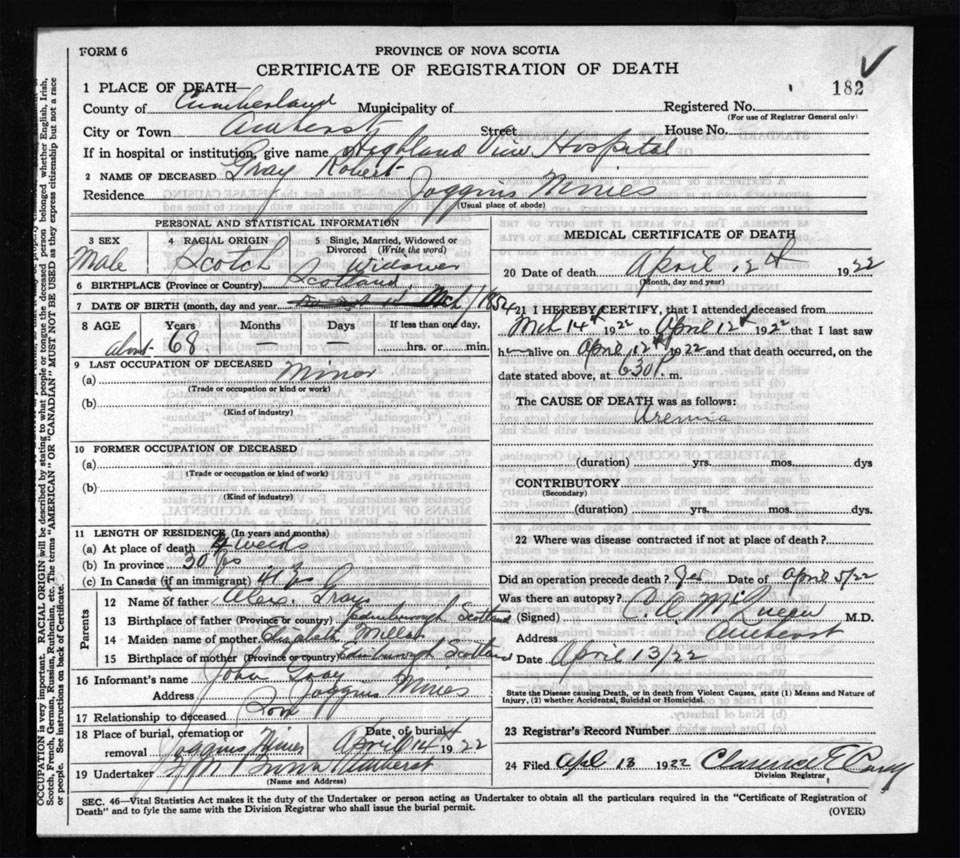 FORM 6
PROVINCE OF NOVA SCOTIA
CERTIFICATE OF REGISTRATION OF DEATH
182
1 PLACE OF DEATH—
County of Cumberland Municipality of Registered No.
(For use of Registrar General only)
City or Town Amherst Street House No.
If in hospital or institution, give name Highland View Hospital
2 NAME OF DECEASED Gray Robert
Residence Joggins Mines
(Usual place of abode)
PERSONAL AND STATISTICAL INFORMATION
3 SEX Male
4 RACIAL ORIGIN Scotch
5 Single, Married, Widowed or Divorced (Write the word) Widower
6 BIRTHPLACE (Province or Country) Scotland
7 DATE OF BIRTH (month, day and year) Mch 1854
8 AGE Years Months Days If less than one day,
about 68 — — hrs. or min.
9 LAST OCCUPATION OF DECEASED
(a) Minor
(Trade or occupation or kind or work)
(b)
(Kind of industry)
10 FORMER OCCUPATION OF DECEASED
(a)
(Trade or occupation or kind of work)
(b)
(Kind of Industry)
11 LENGTH OF RESIDENCE (In years and months)
(a) At place of death 4 weeks
(b) In province 30 yrs
(c) In Canada (if an immigrant) 41 yrs
Parents
12 Name of father Gray
13 Birthplace of father (Province or country) Edinborough Scotland
14 Maiden name of mother Elizabeth Millar
15 Birthplace of mother (Province or country) Edinborough Scotland
16 Informant's name John Gray
Address Joggins Mines
17 Relationship to deceased Son
18 Place of burial, cremation or removal Joggins Mines Date of burial April 14 1922
19 Undertaker Amherst
(Name and Address)
MEDICAL CERTIFICATE OF DEATH
20 Date of death April 12th 1922
(Month, day and year)
21 I HEREBY CERTIFY, that I attended deceased from
Mch 14th 1922 to April 12th 1922 that I last saw
h alive on April 12th 1922 and that death occurred, on the
date stated above, at 630 . m.
The CAUSE OF DEATH was as follows:
Uremia
(duration) yrs. mos. dys
CONTRIBUTORY
(Secondary)
(duration) yrs. mos. dys.
22 Where was disease contracted if not at place of death?
Did an operation precede death? Yes Date of April 5/22
Was there an autopsy?
(Signed) C.A. McQueen M.D.
Address Amherst
Date April 13/22
State the Disease causing Death, or in death from Violent Causes, state (1) Means and Nature of
Injury, (2) whether Accidental, Suicidal or Homicidal.
23 Registrar's Record Number
24 Filed Apl 13 1922 Clarence E Casey
Division Registrar
SEC. 46—Vital Statistics Act makes it the duty of the Undertaker or person acting as Undertaker to obtain all the particulars required in the "Certificate of Registration of
Death" and to fyle the same with the Division Registrar who shall issue the burial permit.
(OVER)
OCCUPATION is very important. RACIAL ORIGIN will be described by stating to what people or tongue the deceased person belonged whether English, Irish,
Scotch, French, German, Russian, Ruthenian, etc. The terms "AMERICAN" OR "CANADIAN" MUST NOT BE USED as they express citizenship but not a race
or people. See instructions on back of Certificate.